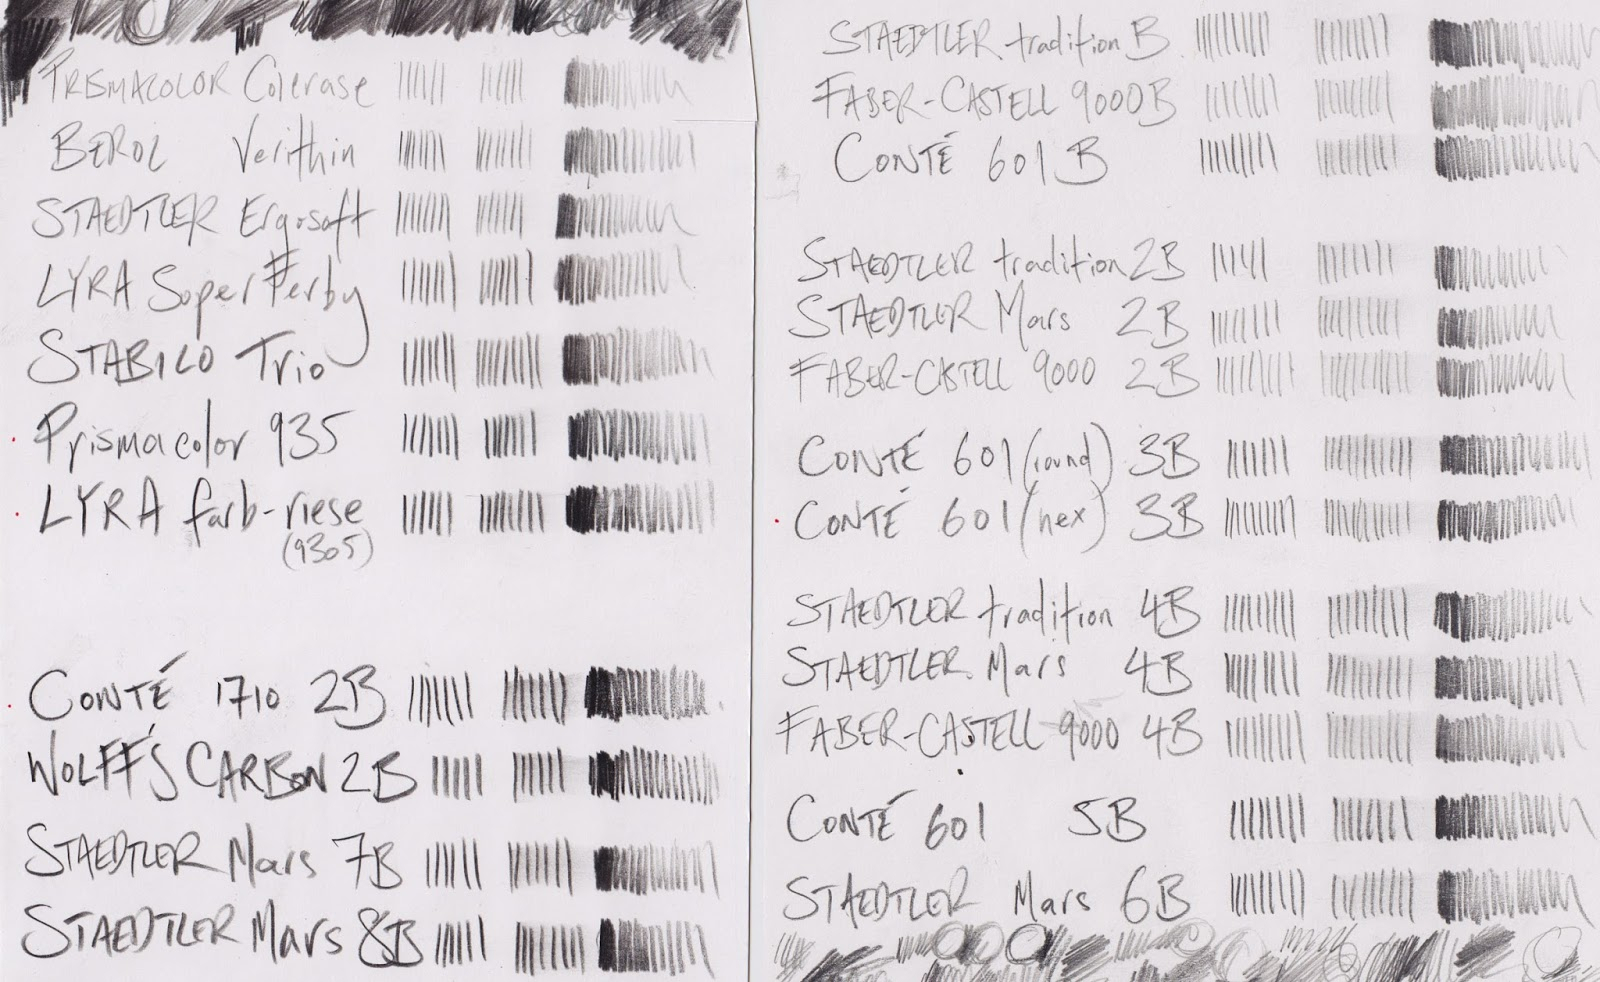 PRISMACOLOR Colerase
BEROL Verithin
STAEDTLER Ergosoft
LYRA Super Ferby
STABILO Trio
Prismacolor 935
LYRA farb-riese
(9305)
CONTÉ 1710 2B
WOLFF'S CARBON 2B
STAEDTLER Mars 7B
STAEDTLER Mars 8B
STAEDTLER tradition B
FABER-CASTELL 9000 B
CONTÉ 601 B
STAEDTLER tradition 2B
STAEDTLER Mars 2B
FABER-CASTELL 9000 2B
CONTÉ 601 (round) 3B
CONTÉ 601 (hex) 3B
STAEDTLER tradition 4B
STAEDTLER Mars 4B
FABER-CASTELL 9000 4B
CONTÉ 601 5B
STAEDTLER Mars 6B